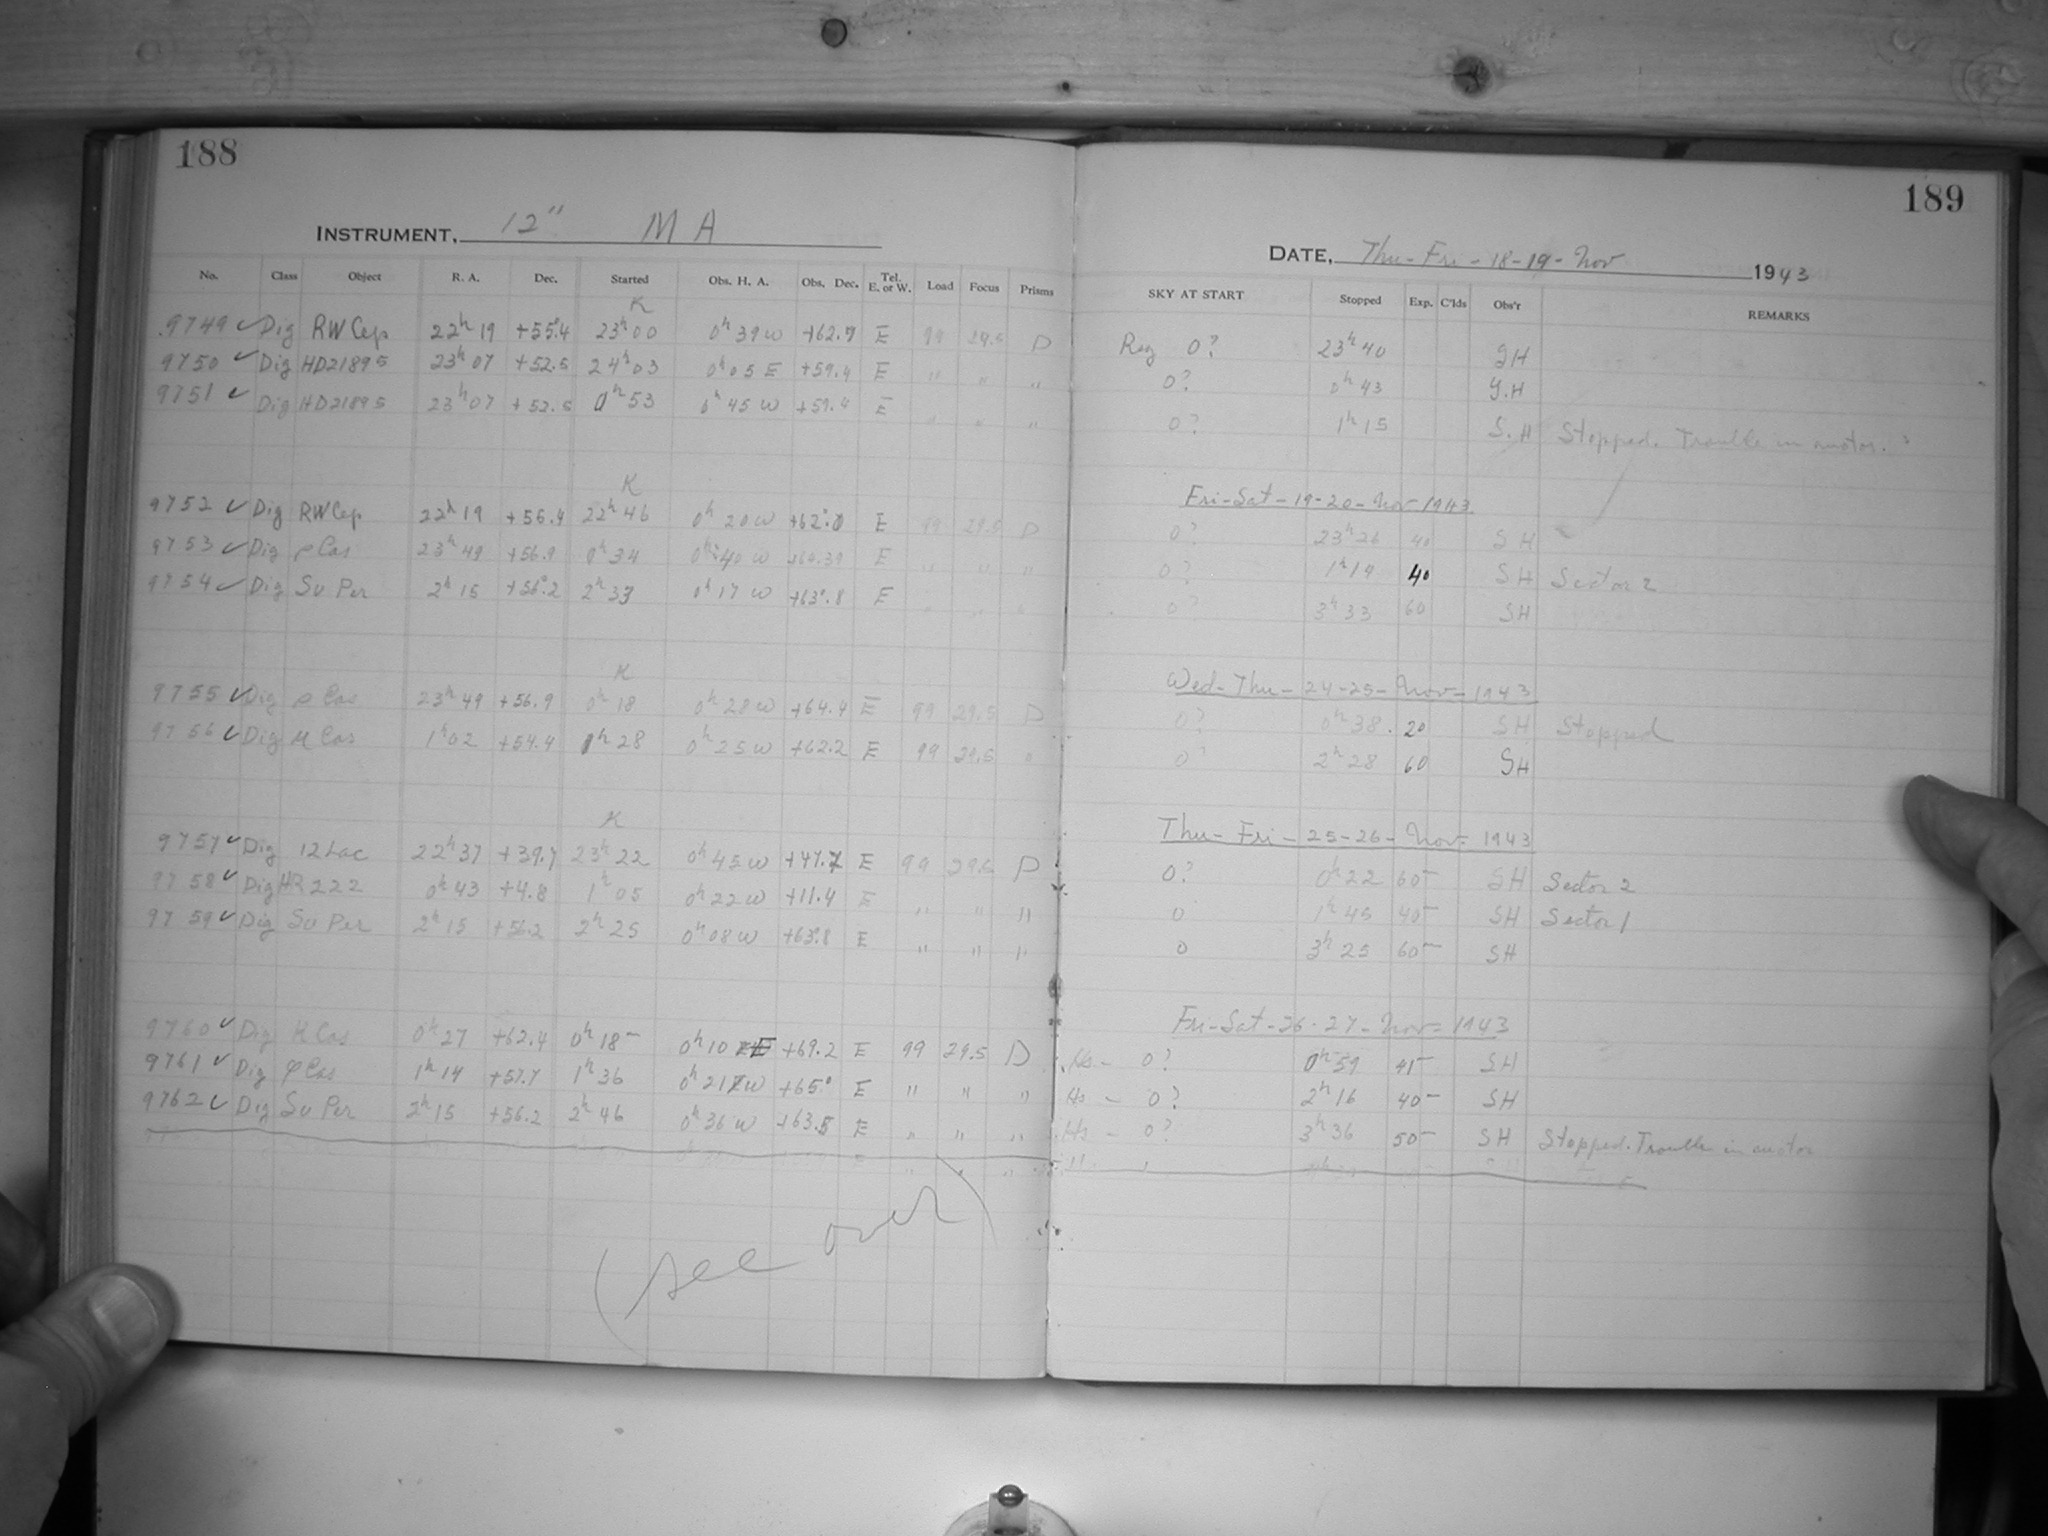 188
INSTRUMENT, 12" M A
No. Class Object R. A. Dec. Started Obs. H. A. Obs. Dec. Tel. E. or W. Load Focus Prisms
K
9749 ✓ Dig RW Cep 22h 19 +55°.4 23h 00 0h 39 W +62.7 E 99 29.5 D
9750 ✓ Dig HD21895 23h 07 +52.5 24h 03 0h 05 E +59.4 E " " "
9751 ✓ Dig HD21895 23h 07 +52.5 0h 53 0h 45 W +59.4 E " " "
K
9752 ✓ Dig RW Cep 22h 19 +56.4 22h 46 0h 20 W +62°.0 E 99 29.5 D
9753 ✓ Dig ρ Cas 23h 49 +56.9 0h 34 0h 40 W E " " "
9754 ✓ Dig Su Per 2h 15 +56°.2 2h 33 0h 17 W +63°.8 E " " "
K
9755 ✓ Dig ρ Cas 23h 49 +56.9 0h 18 0h 28 W +64.4 E 99 29.5 D
9756 ✓ Dig μ Cas 1h 02 +54.4 1h 28 0h 25 W +62.2 E 99 29.5 "
K
9757 ✓ Dig 12 Lac 22h 37 +39.7 23h 22 0h 45 W +47.7 E 99 29.5 D
9758 ✓ Dig HR 222 0h 43 +4.8 1h 05 0h 22 W +11.4 E " " "
9759 ✓ Dig Su Per 2h 15 +56.2 2h 25 0h 08 W +63°.8 E " " "
9760 ✓ Dig K Cas 0h 27 +62.4 0h 18 – 0h 10 E +69.2 E 99 29.5 D
9761 ✓ Dig φ Cas 1h 14 +57.7 1h 36 0h 21 W +65.° E " " "
9762 ✓ Dig Su Per 2h 15 +56.2 2h 46 0h 36 W +63.5 E " " "
(see over)
189
DATE, Thu-Fri-18-19-Nov 1943
SKY AT START Stopped Exp. C'lds Obs'r REMARKS
Reg 0? 23h 40 SH
0? 0h 43 S.H
0? 1h 15 S.H Stopped. Trouble in motor.
Fri-Sat-19-20-Nov-1943
0? 23h 26 40 SH
0? 1h 14 40 SH Sector 2
0? 3h 33 60 SH
Wed-Thu-24-25-Nov-1943
0? 0h 38 20 SH Stopped
0? 2h 28 60 SH
Thu-Fri-25-26-Nov-1943
0? 0h 22 60– SH Sector 2
0 1h 45 40– SH Sector 1
0 3h 25 60– SH
Fri-Sat-26-27-Nov-1943
Hs – 0? 0h 59 41– SH
Hs – 0? 2h 16 40– SH
Hs – 0? 3h 36 50– SH Stopped. Trouble in motor